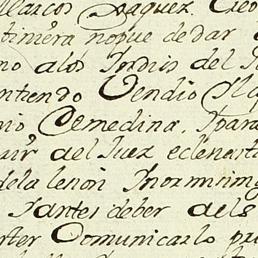 Marcos Vaquez Creo
timera no pue de dar
no alos Indios del
ntiendo Vendio
nio Demedina, Ypara
del Juez eclesiasti
dela lesion Ynormnim
Yantes deber dels
rter Comunicarlo pr